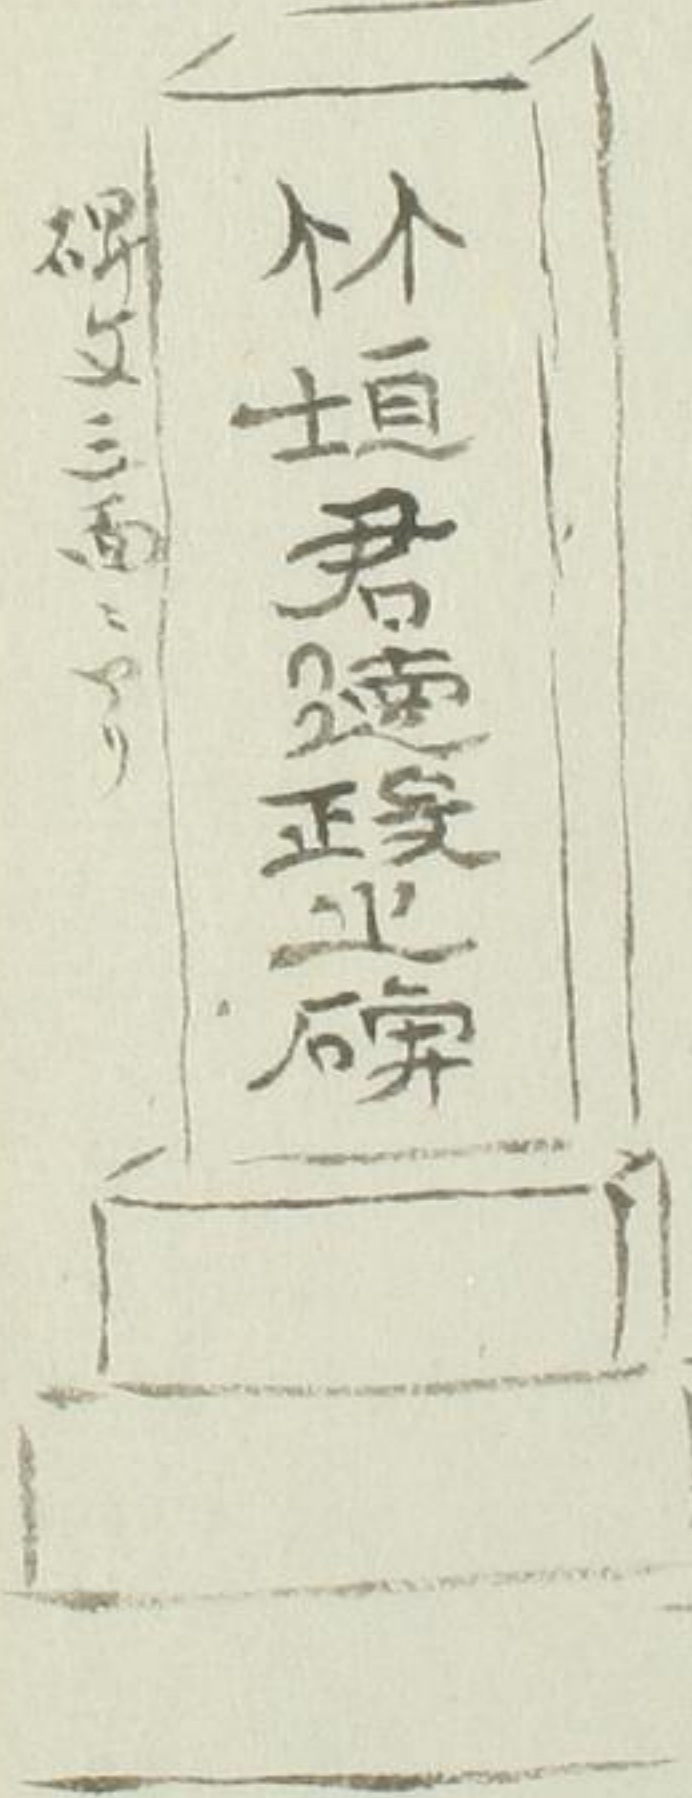 竹垣君德政之碑
碑文三面ニあり